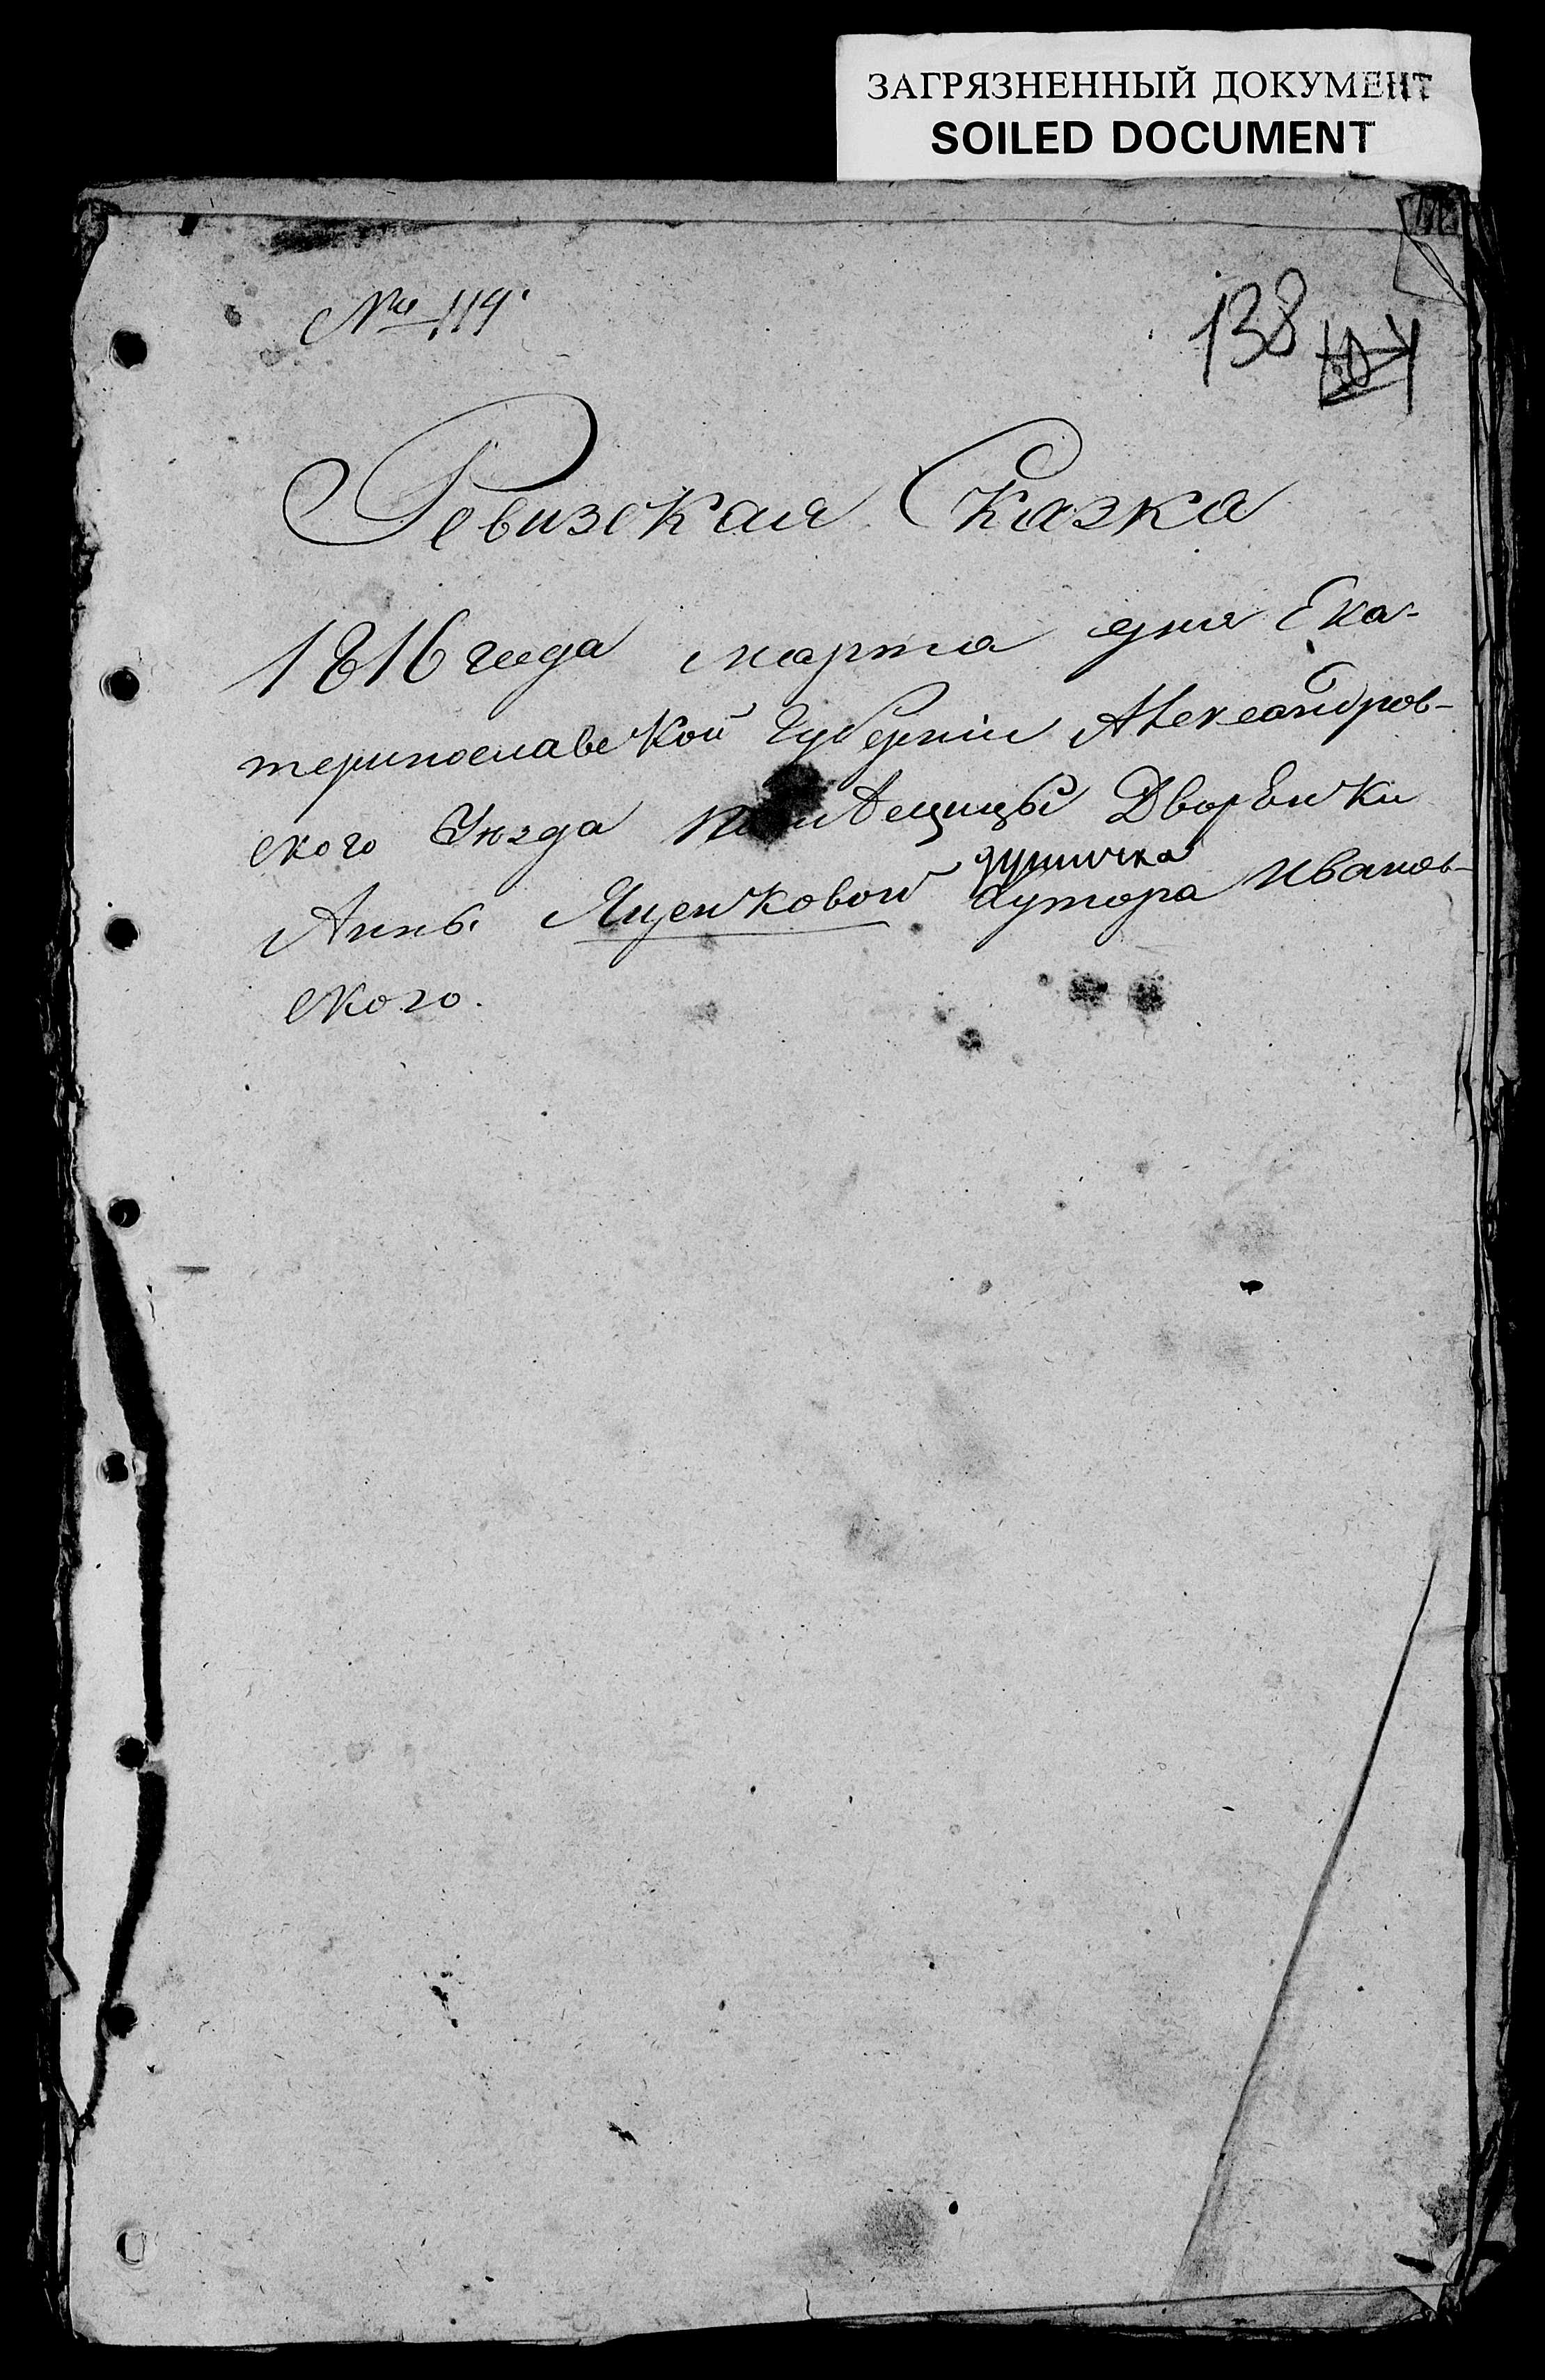 ЗАГРЯЗНЕННЫЙ ДОКУМЕНТ
SOILED DOCUMENT
№ 119
138
Ревизская Сказка
1816 года марта дня Ека-
теринославской Губернiи Александров-
ского Уюзда помѣщицы Дворѣнки
Анны Яценковой хутора Иванов-
ского.